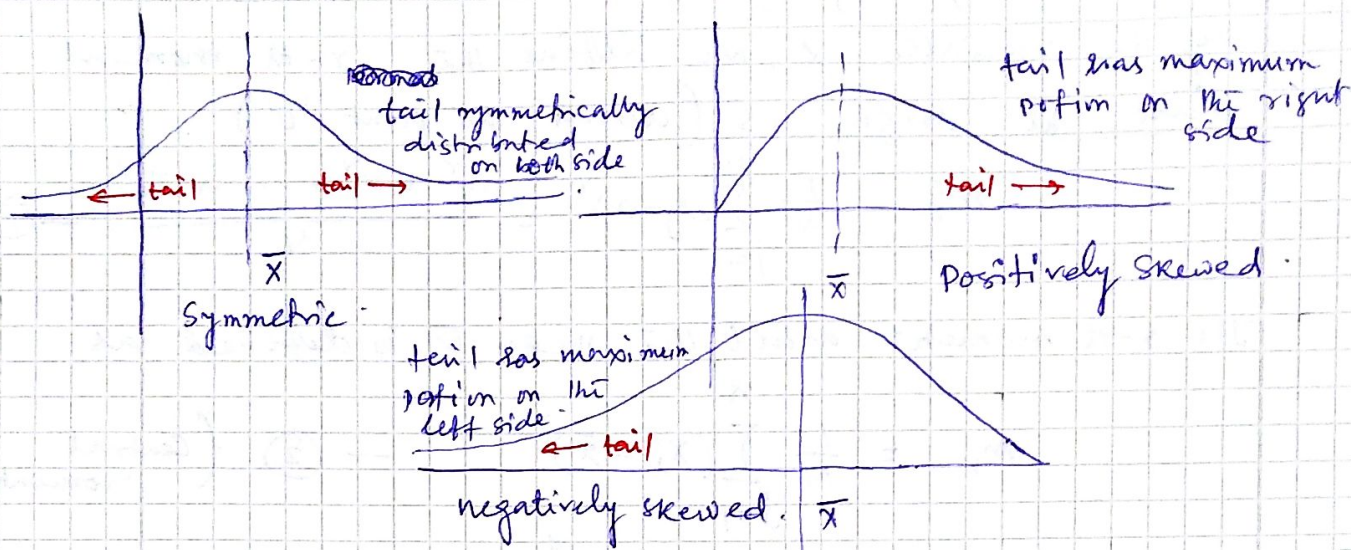 tail symmetrically
distributed
on both side
← tail
tail →
x̄
Symmetric.
tail has maximum
potion on the right
side
tail →
x̄
Positively skewed.
tail has maximum
potion on the
left side.
← tail
negatively skewed.
x̄